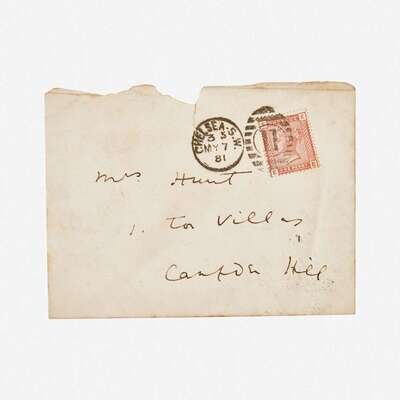 CHELSEA·S.W.
3 3
MY 7
81
Mrs Hunt
1. Tor Villas
Campden Hill